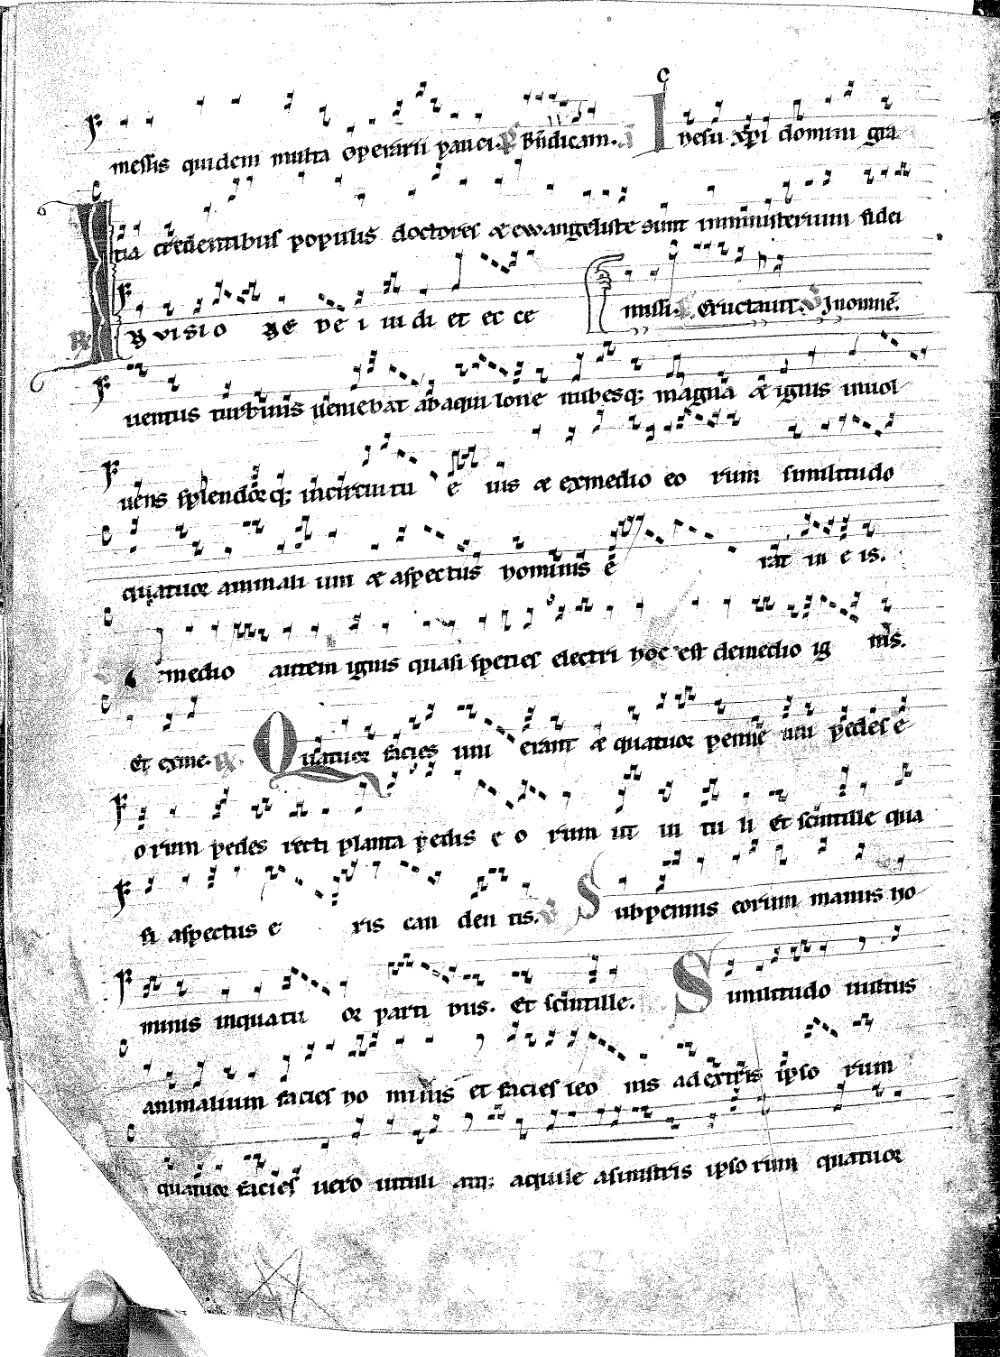 messis quidem multa operarii pauci. Bñdicam. Ihesu xpi domini gra
tia credentibus populis doctores & ewangeliste sunt inministerium fidei
IN VISIONE DE I ui di et ec ce missi. Eructauit. In omnē.
uentus turbinis ueniebat abaqui lone nubesq; magna & ignis inuol
uens splendorq; incircuitu e ius & exmedio eo rum similitudo
quatuor animali um & aspectus hominis e rat in e is.
medio autem ignis quasi species electri hoc est demedio ig nis.
Et exme. Quatuor facies uni erant & quatuor penne uni pedes e
orum pedes recti planta pedis e o rum ut in tu li Et scintille qua
si aspectus e ris can den tis. Subpennis eorum manus ho
minis inquatu or parti bus. Et scintille. Similitudo uultus
animalium facies ho minis et facies leo nis ad extris ipso rum
quatuor facies uero uituli aquile asinistris ipso rum quatuor